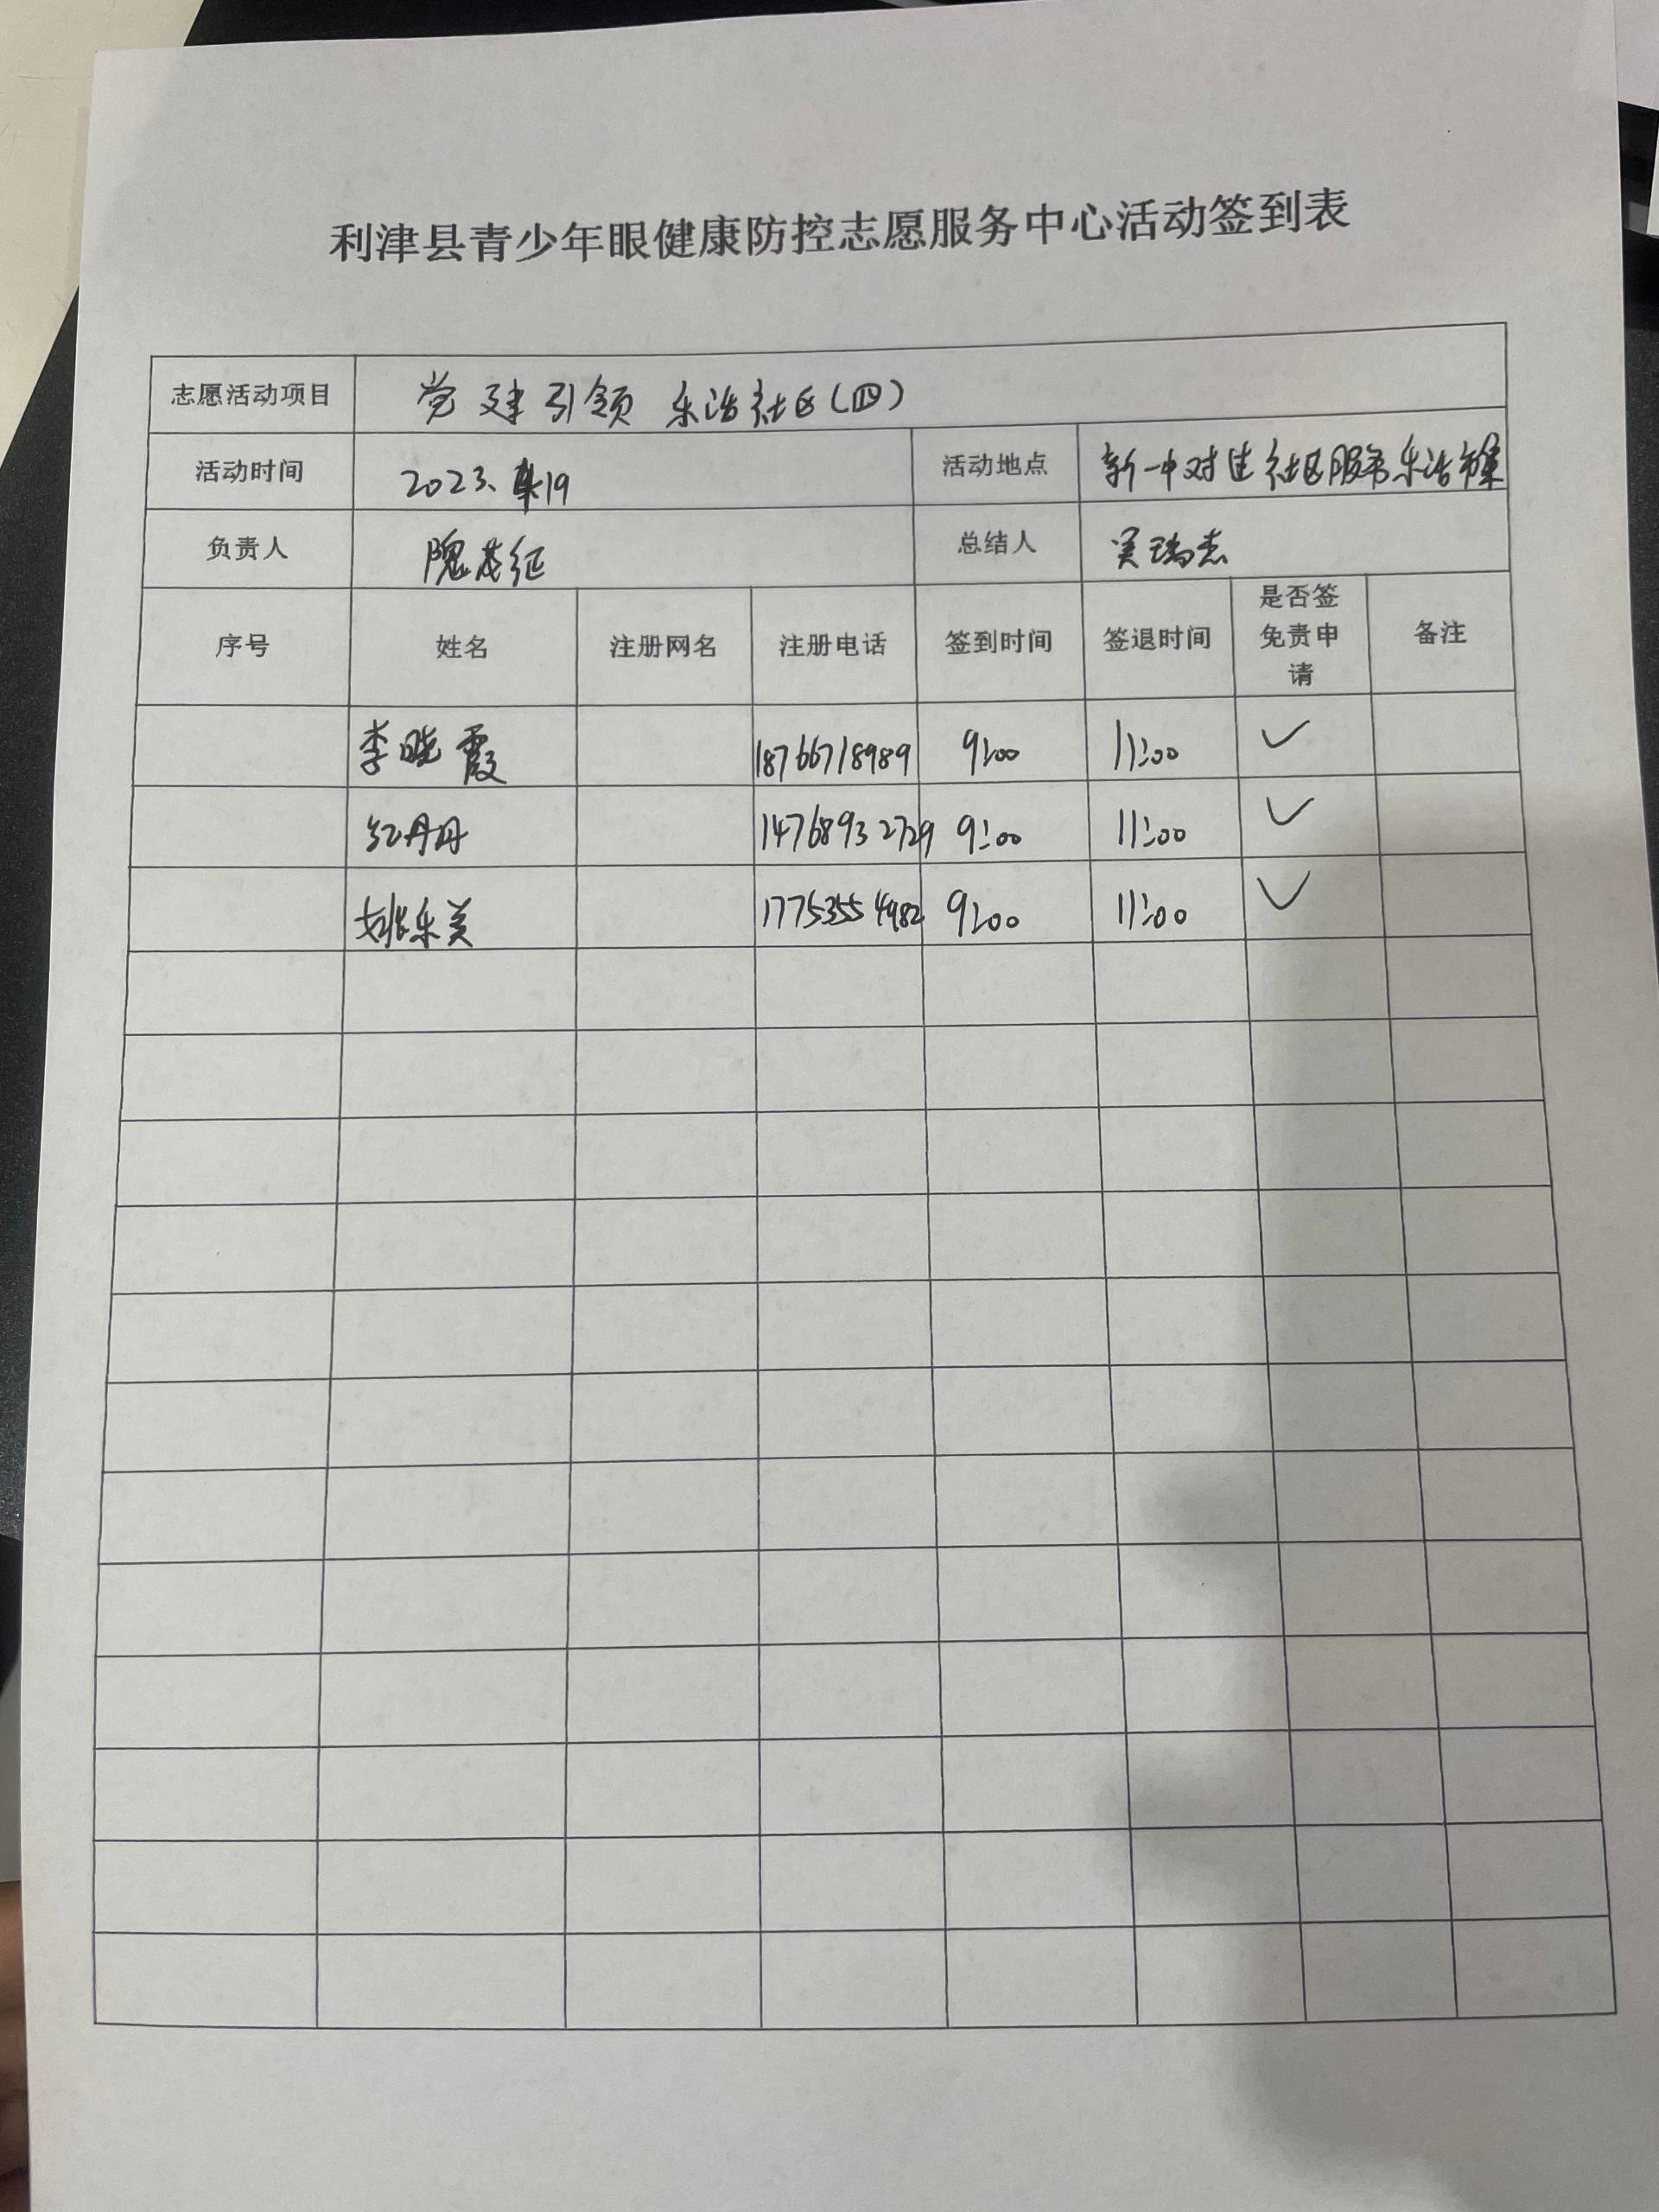 利津县青少年眼健康防控志愿服务中心活动签到表
志愿活动项目 党建引领 乐活社区(四)
活动时间 2023. 活动地点 新一中对过社区服务乐活
负责人 隗茂征 总结人 吴瑞志
序号 姓名 注册网名 注册电话 签到时间 签退时间 是否签免责申请 备注
李晓霞 18766718989 9:00 11:00 ✓
红丹丹 14768932729 9:00 11:00 ✓
姚乐美 17753554982 9:00 11:00 ✓